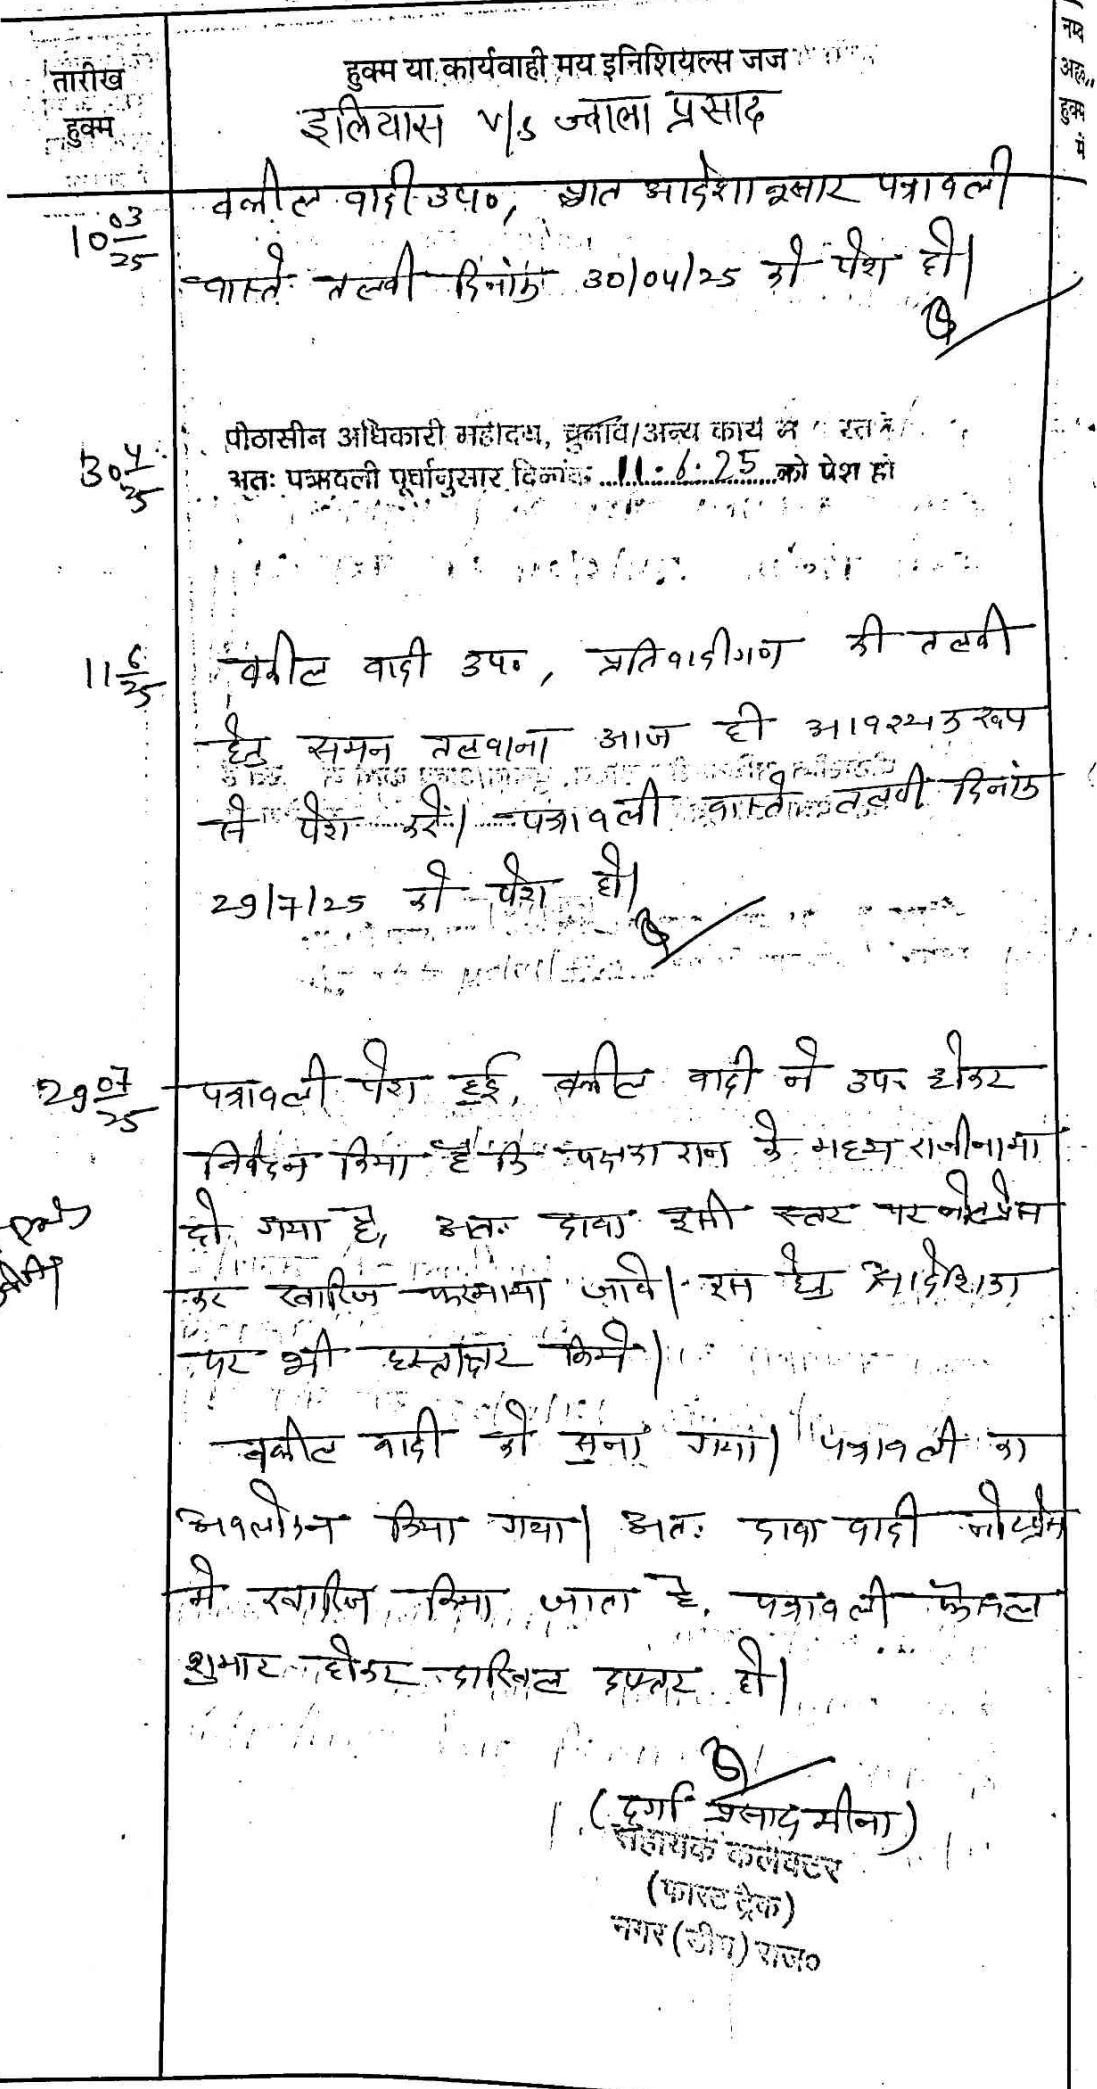 तारीख
हुक्म
हुक्म या कार्यवाही मय इनिशियल्स जज
इलियास v/s ज्वाला प्रसाद
नम्ब
अह..
हुक्म
में
10 03/25
वकील वादी उप०, आदेशानुसार पत्रावली
वास्ते तलवी दिनांक 30/04/25 को पेश हो।
30 4/25
पीठासीन अधिकारी महोदय, चुनाव/अन्य कार्य में
अतः पत्रावली पूर्वानुसार दिनांक 11.6.25 को पेश हो
11 6/25
वकील वादी उप०, प्रतिवादीगण की तलवी
हेतु समन तलवाना आज ही आवश्यक रूप
से पेश करें। पत्रावली वास्ते तलवी दिनांक
29/7/25 को पेश हो।
29 07/25
पत्रावली पेश हुई, वकील वादी ने उप० होकर
निवेदन किया है कि पक्षकारान के मध्य राजीनामा
हो गया है, अतः दावा इसी स्तर पर नोटप्रेस
कर खारिज फरमाया जावे। इस हेतु आदेशिका
पर भी हस्ताक्षर किये।
वकील वादी को सुना गया। पत्रावली का
अवलोकन किया गया। अतः दावा वादी नोटप्रेस
मे खारिज किया जाता है, पत्रावली फैसल
शुमार होकर दाखिल दफ्तर हो।
(दुर्गा प्रसाद मीना)
सहायक कलेक्टर
(फास्ट ट्रैक)
नगर (डीग) राज०